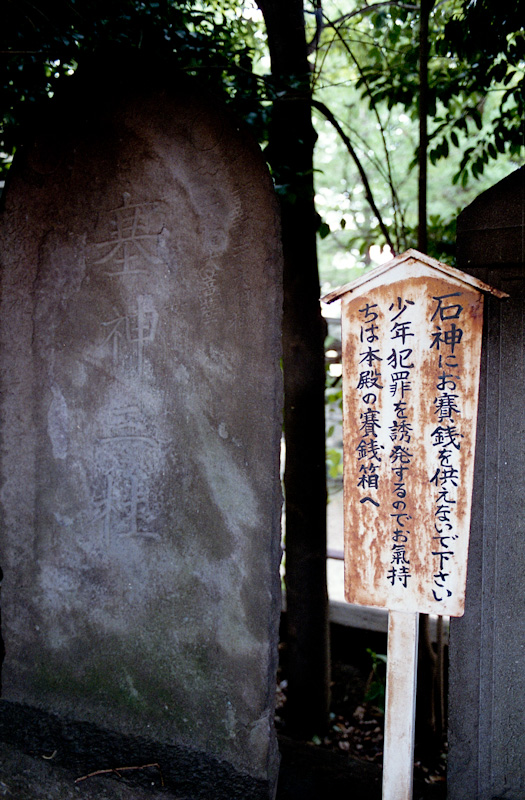 石神にお賽銭を供えないで下さい
少年犯罪を誘発するのでお氣持
ちは本殿の賽銭箱へ
塞神三柱